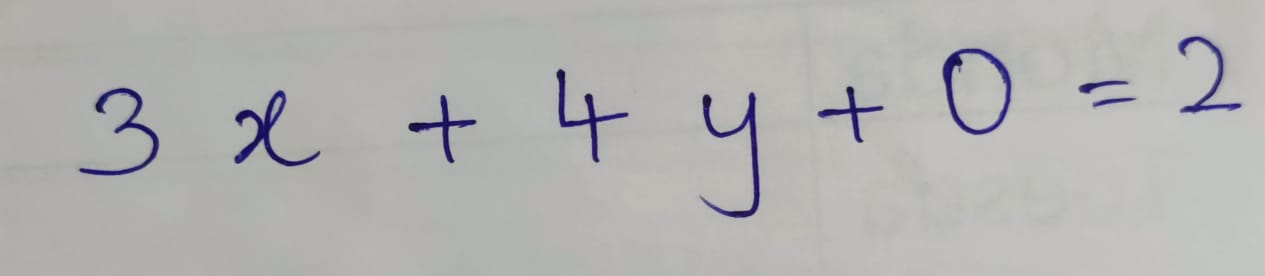 3 x + 4 y + 0 = 2